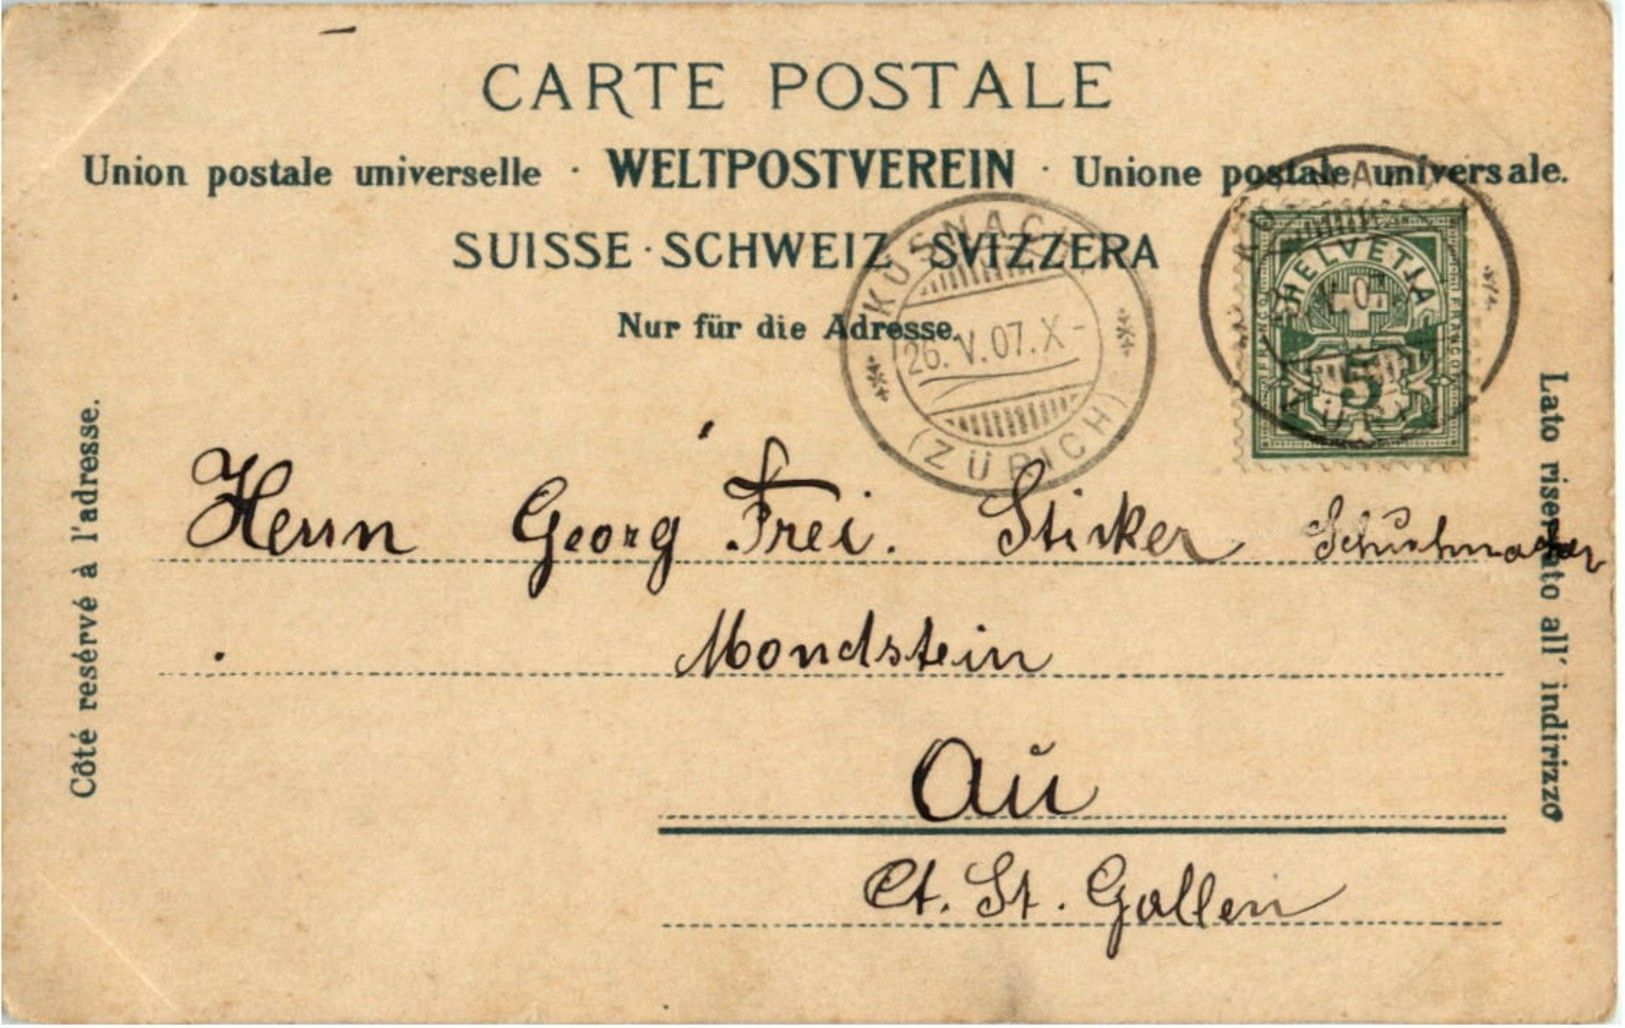 CARTE POSTALE
Union postale universelle · WELTPOSTVEREIN · Unione postale universale.
SUISSE · SCHWEIZ · SVIZZERA
Nur für die Adresse.
KÜSNACH
26. V. 07. X-
(ZÜRICH)
HELVETIA
FRANCO
FRANCO
5
Côté resérvé à l'adresse.
Lato riservato all' indirizzo
Herrn Georg Frei. Sticker Schuhmacher
Mondstein
Au
Ct. St. Gallen